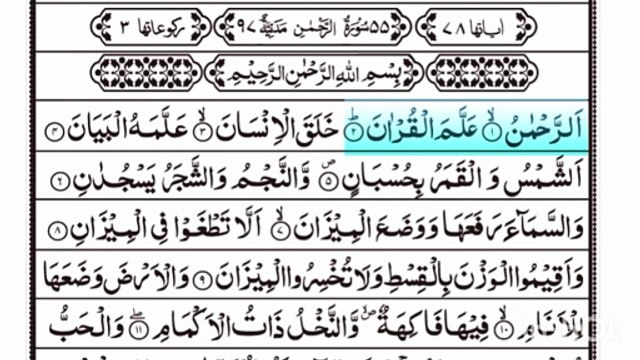 اٰیاتها ٧٨ ٥٥ سُوْرَةُ الرَّحْمٰنِ مَدَنِيَّةٌ ٩٧ رکوعاتها ٣
بِسْمِ اللهِ الرَّحْمٰنِ الرَّحِيْمِ
اَلرَّحْمٰنُ ۙ﴿١﴾ عَلَّمَ الْقُرْاٰنَ ؕ﴿٢﴾ خَلَقَ الْاِنْسَانَ ۙ﴿٣﴾ عَلَّمَهُ الْبَيَانَ ﴿٤﴾
اَلشَّمْسُ وَ الْقَمَرُ بِحُسْبَانٍ ۪﴿٥﴾ وَّالنَّجْمُ وَالشَّجَرُ يَسْجُدٰنِ ﴿٦﴾
وَالسَّمَآءَ رَفَعَهَا وَوَضَعَ الْمِيْزَانَ ۙ﴿٧﴾ اَلَّا تَطْغَوْا فِى الْمِيْزَانِ ﴿٨﴾
وَاَقِيْمُوا الْوَزْنَ بِالْقِسْطِ وَلَا تُخْسِرُوا الْمِيْزَانَ ﴿٩﴾ وَالْاَرْضَ وَضَعَهَا
لِلْاَنَامِ ۙ﴿١٠﴾ فِيْهَا فَاكِهَةٌ ۪ۙ وَّالنَّخْلُ ذَاتُ الْاَكْمَامِ ۖ﴿١١﴾ وَالْحَبُّ